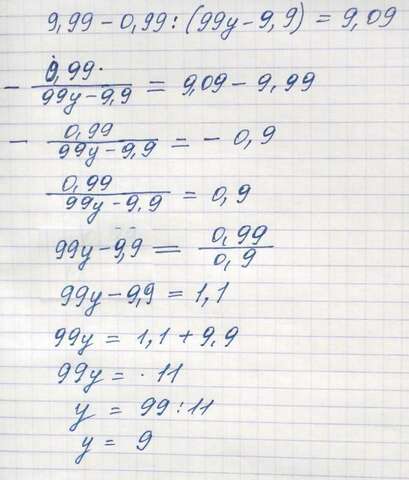 9,99 - 0,99 : (99y - 9,9) = 9,09
- 0,99 / (99y - 9,9) = 9,09 - 9,99
- 0,99 / (99y - 9,9) = - 0,9
0,99 / (99y - 9,9) = 0,9
99y - 9,9 = 0,99 / 0,9
99y - 9,9 = 1,1
99y = 1,1 + 9,9
99y = · 11
y = 99 : 11
y = 9